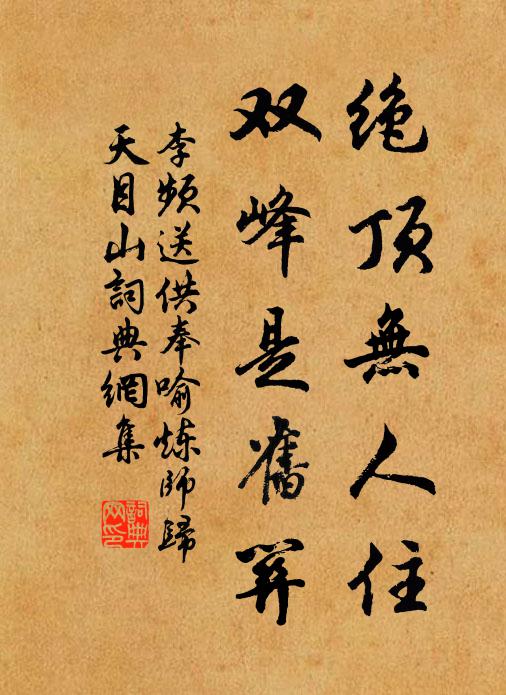 绝顶無人住
双峰是舊羿
李频送供奉喻炼师歸
天目山詞典網集
詞典网印